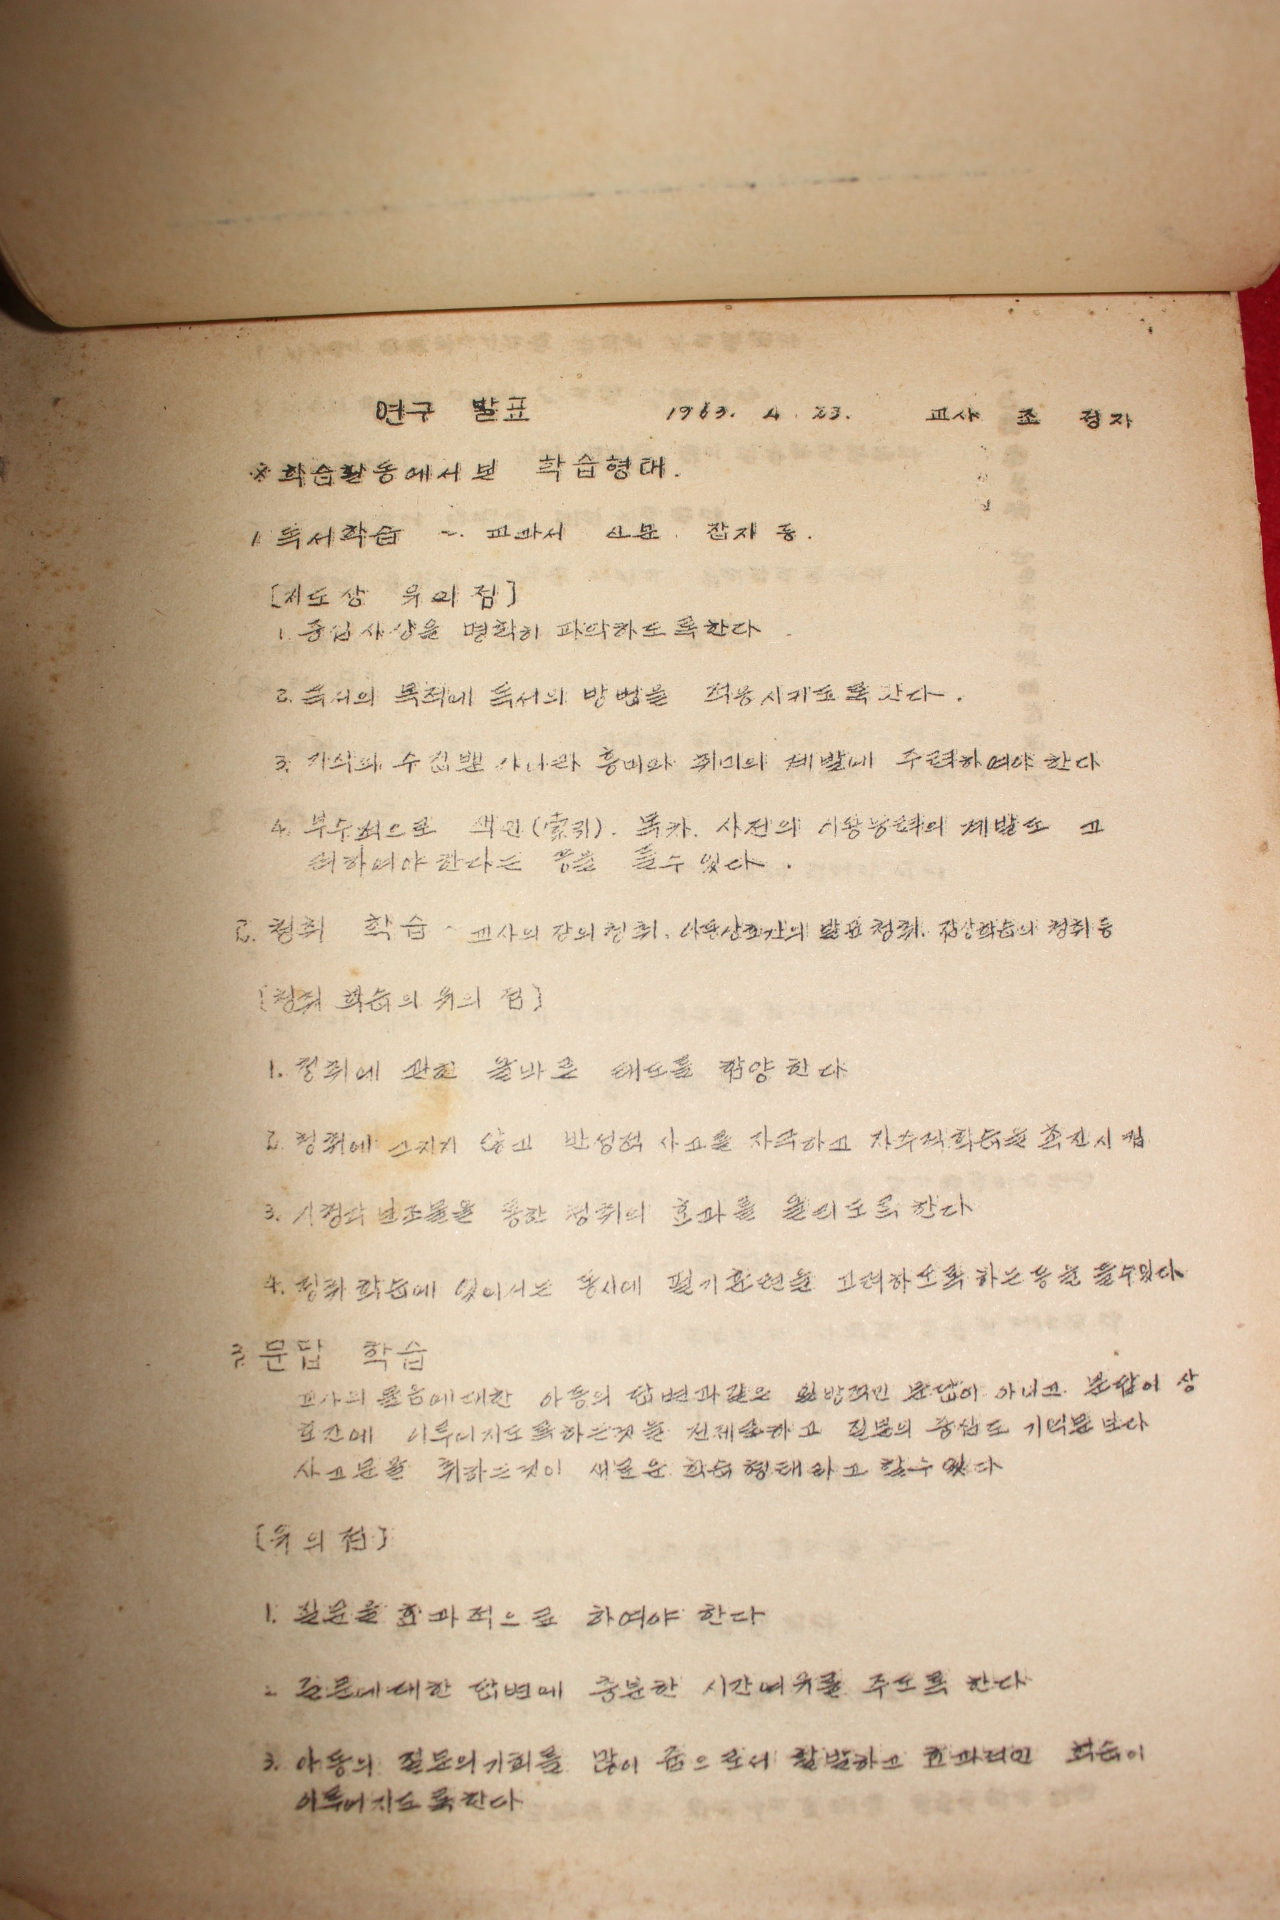 연구 발표 1963. 4. 23. 교사 조 정자
※ 학습활동에서 본 학습형태.
1 독서학습 ~. 교과서 신문. 잡지 등.
[지도상 유의점]
1. 중심사상을 명확히 파악하도록한다.
2. 독서의 목적에 독서의 방법을 적용시키도록한다.
3. 지식의 수집뿐 아니라 흥미와 취미의 계발에 주력하여야 한다
4. 부수적으로 색인(索引). 목차. 사전의 사용능력의 계발도 고
려하여야한다는 등을 들수 있다.
2. 청취 학습 ~ 교사의 강의청취. 아동상호간의 발표청취. 감상학습의 청취등
[청취 학습의 유의 점]
1. 청취에 관한 올바른 태도를 함양한다
2. 청취에 그치지 않고 반성적 사고를 자극하고 자주적학습을 촉진시킴
3. 시청각보조물을 통한 청취의 효과를 올리도록 한다
4. 청취학습에 있어서는 동시에 필기훈련을 고려하도록하는등을 들수있다
3. 문답 학습
교사의 물음에대한 아동의 답변과같은 일방적인 문답이 아니고. 문답이 상
호간에 이루어지도록하는것을 전제로하고 질문의 중심도 기억문보다
사고문을 취하는것이 새로운 학습형태라고 할수있다
[유의점]
1. 질문을 효과적으로 하여야 한다
2. 질문에대한 답변에 충분한 시간여유를 주도록 한다
3. 아동의 질문의기회를 많이 줌으로서 활발하고 효과적인 학습이
이루어지도록한다